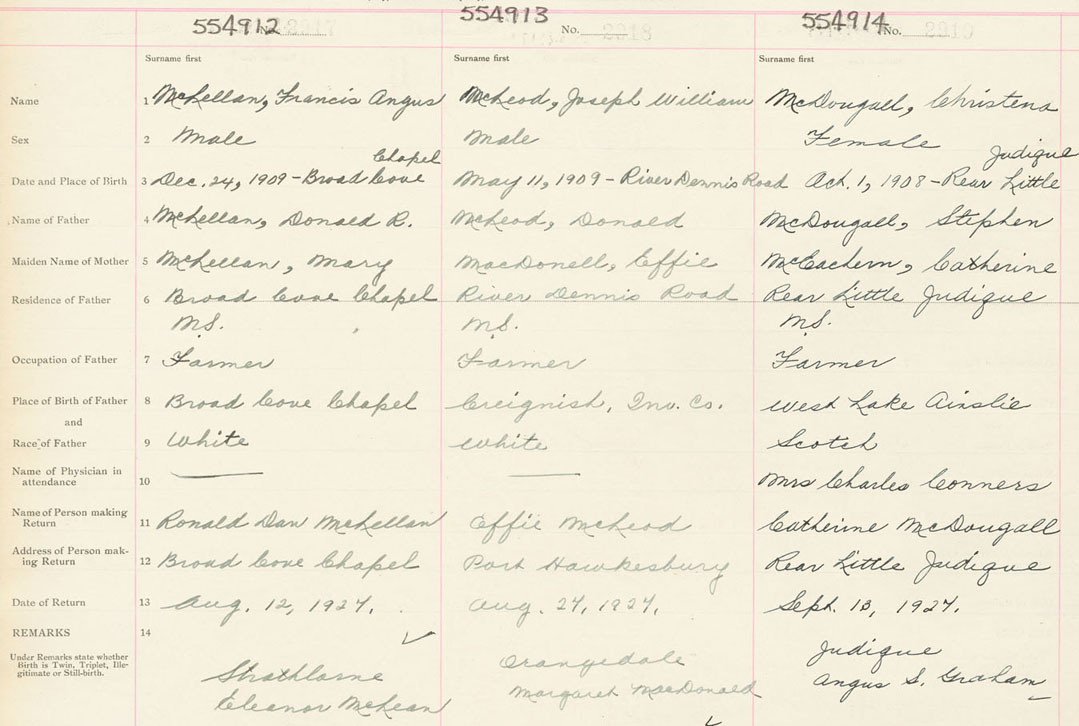 554912 554913 554914
No. 2217 No. 2218 No. 2219
Surname first Surname first Surname first
Name 1 McLellan, Francis Angus McLeod, Joseph William McDougall, Christena
Sex 2 Male Male Female
Chapel Judique
Date and Place of Birth 3 Dec. 24, 1909 - Broad Cove May 11, 1909 - River Dennis Road Oct. 1, 1908 - Rear Little
Name of Father 4 McLellan, Donald R. McLeod, Donald McDougall, Stephen
Maiden Name of Mother 5 McLellan, Mary MacDonell, Effie McEachern, Catherine
Residence of Father 6 Broad Cove Chapel River Dennis Road Rear Little Judique
N.S. N.S. N.S.
Occupation of Father 7 Farmer Farmer Farmer
Place of Birth of Father 8 Broad Cove Chapel Creignish, Inv. Co. West Lake Ainslie
and
Race of Father 9 White White Scotch
Name of Physician in
attendance 10 Mrs Charles Conners
Name of Person making
Return 11 Ronald Dan McLellan Effie McLeod Catherine McDougall
Address of Person mak-
ing Return 12 Broad Cove Chapel Port Hawkesbury Rear Little Judique
Date of Return 13 Aug. 12, 1927. Aug. 27, 1927. Sept. 13, 1927.
REMARKS 14
Under Remarks state whether
Birth is Twin, Triplet, Ille-
gitimate or Still-birth.
Strathlorne Orangedale Judique
Eleanor McLean Margaret MacDonald Angus S. Graham